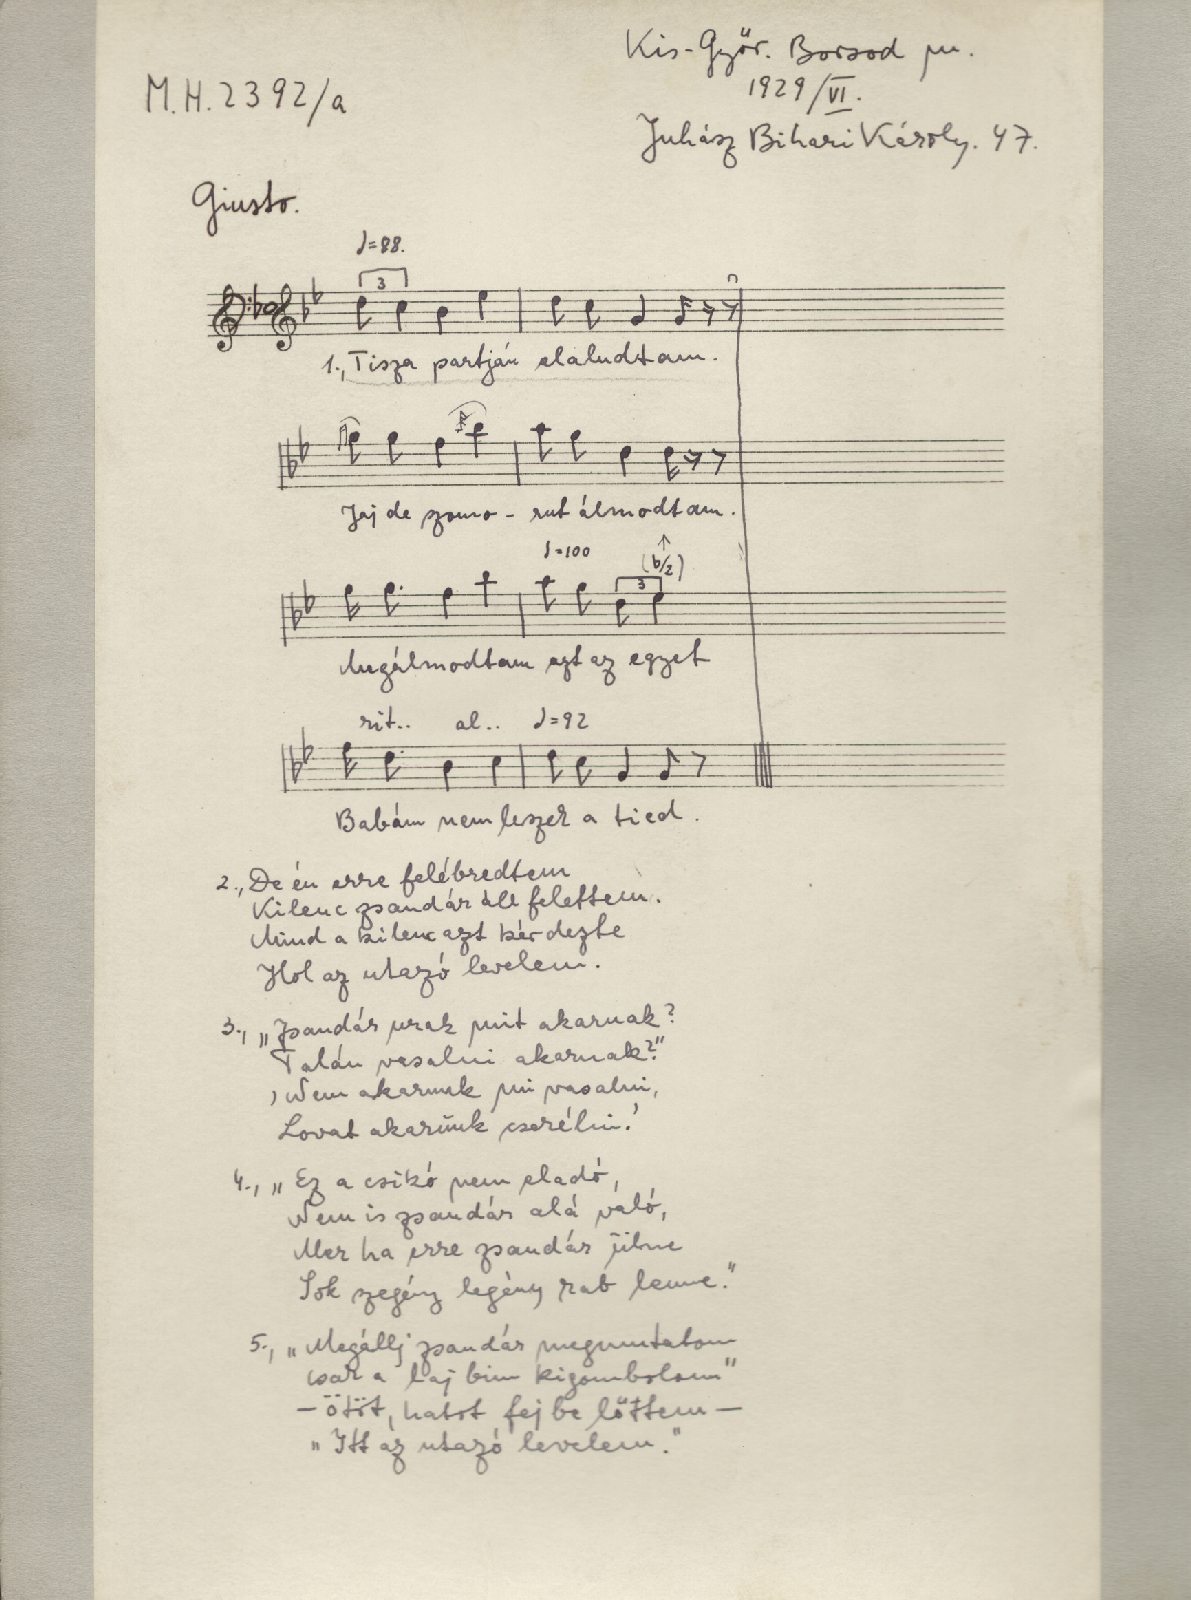 Kis-Győr. Borsod m.
M.H. 2392/a
1929/VI.
Juhász Bihari Károly. 47.
Giusto.
♩=88.
3
1., Tisza partján elaludtam.
Jaj de szomo - rut álmodtam.
♩=100
(b/2)
3
Megálmodtam ezt az egyet
rit.. al.. ♩=92
Babám nem leszek a tied.
2., De én erre felébredtem
Kilenc zsandár áll felettem.
Mind a kilenc azt kérdezte
Hol az utazó levelem.
3., „Zsandár urak mit akarnak?
Talán vasalni akarnak?"
, Nem akarunk mi vasalni,
Lovat akarunk cserélni.'
4., „Ez a csikó nem eladó,
Nem is zsandár alá való,
Mer ha erre zsandár ülne
Sok szegény legény rab lenne."
5., „Megállj zsandár megmutatom
csak a lajbim kigombolom"
— ötöt, hatot fejbe lőttem —
„Itt az utazó levelem."